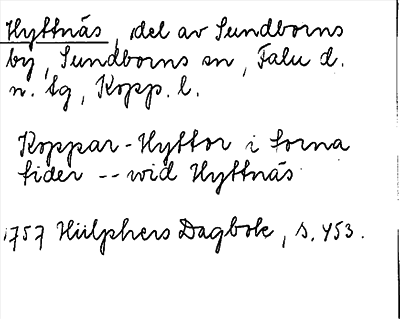 Hyttnäs, del av Sundborns
by, Sundborns sn, Falu d.
n. tg, Kopp. l.
Koppar-Hyttor i forna
tider -- wid Hyttnäs
1757 Hülphers Dagbok, s. 453.